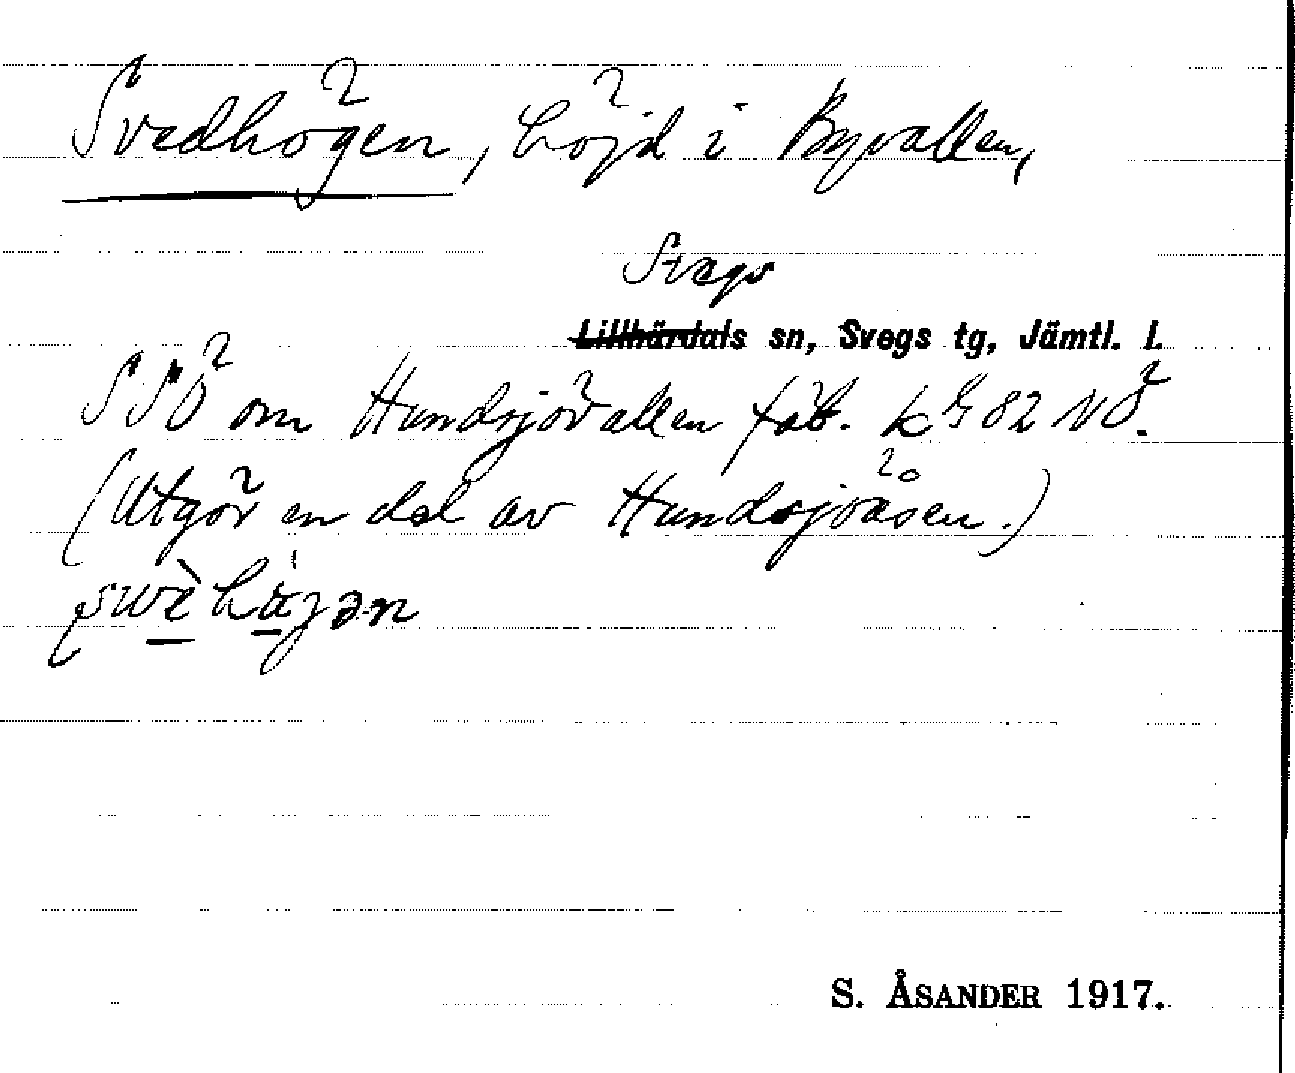 Svedhögen, höjd i Byvallen,
Svegs
Lillhärdals sn, Svegs tg, Jämtl. l.
SSÖ om Hundsjövallen fäb. kbl 82 NÖ.
(Utgör en del av Hundsjöåsen.)
swèhä́jən
S. ÅSANDER 1917.